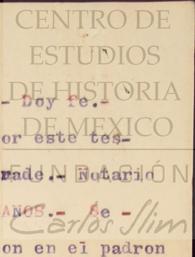 CENTRO DE
ESTUDIOS
DE HISTORIA
DE MEXICO
FUNDACIÓN
Carlos Slim
- Doy fe.-
or este tes-
rade.- Notario
ANOS.- Se -
on en el padron